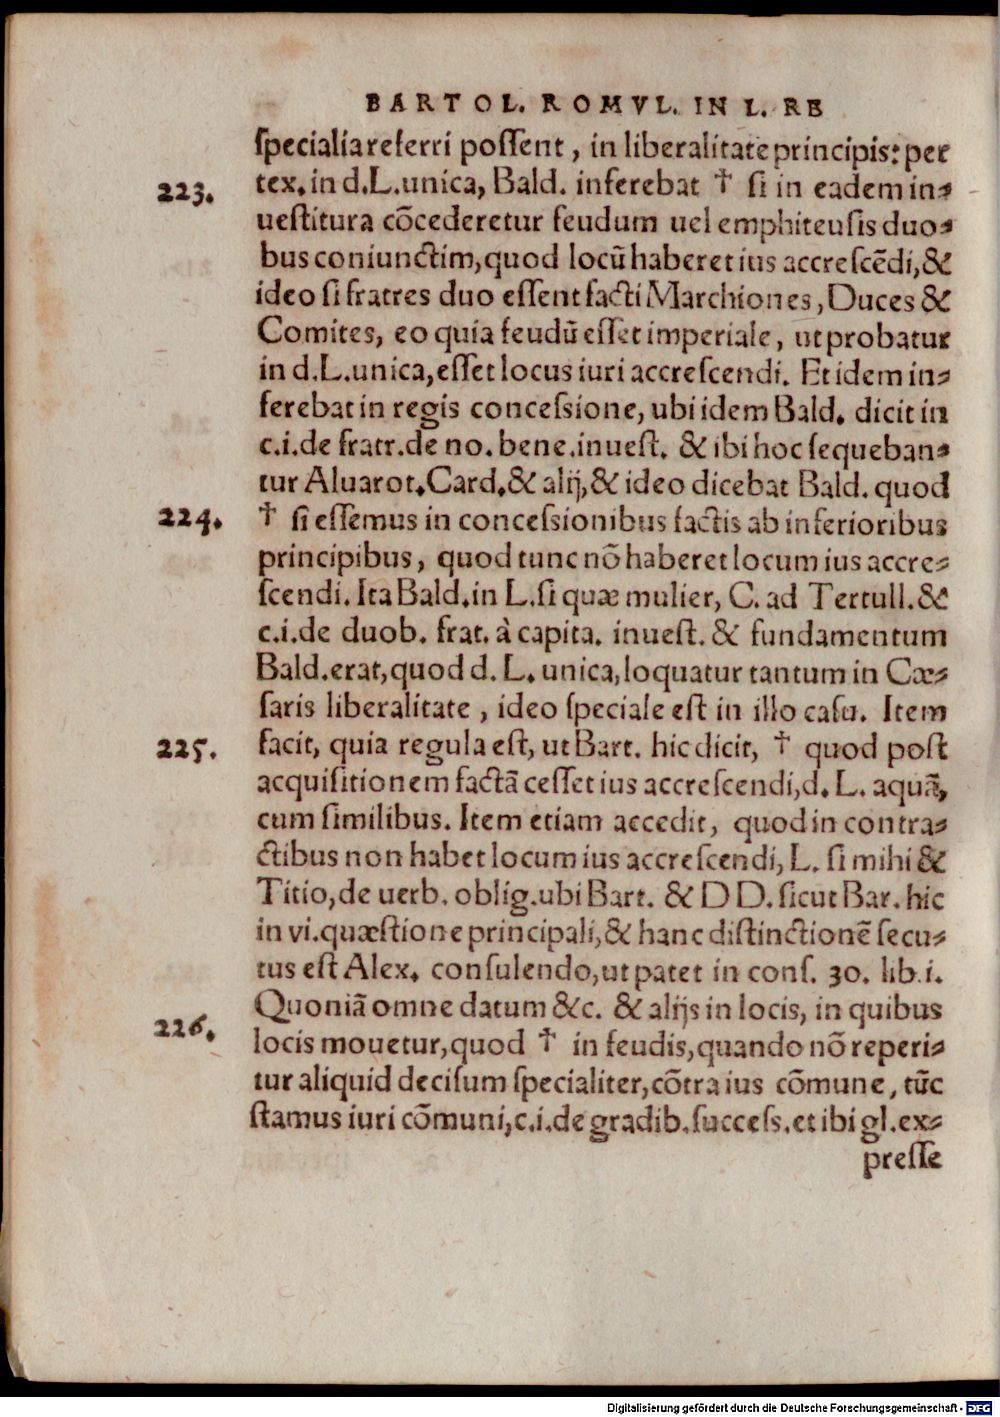 BARTOL. ROMVL. IN L. RE
specialia referri possent, in liberalitate principis: per
223. tex. in d.L.unica, Bald. inferebat † si in eadem in-
uestitura cõcederetur feudum uel emphiteusis duo-
bus coniunctim, quod locũ haberet ius accrescẽdi, &
ideo si fratres duo essent facti Marchiones, Duces &
Comites, eo quia feudũ esset imperiale, ut probatur
in d.L.unica, esset locus iuri accrescendi. Et idem in-
ferebat in regis concessione, ubi idem Bald. dicit in
c.i.de fratr.de no. bene.inuest. & ibi hoc sequeban-
tur Aluarot. Card. & alij, & ideo dicebat Bald. quod
224. † si essemus in concessionibus factis ab inferioribus
principibus, quod tunc nõ haberet locum ius accre-
scendi. Ita Bald. in L. si quæ mulier, C. ad Tertull. &
c.i.de duob. frat. à capita. inuest. & fundamentum
Bald. erat, quod d. L. unica, loquatur tantum in Cæ-
saris liberalitate, ideo speciale est in illo casu. Item
225. facit, quia regula est, ut Bart. hic dicit, † quod post
acquisitionem factã cesset ius accrescendi, d. L. aquã,
cum similibus. Item etiam accedit, quod in contra-
ctibus non habet locum ius accrescendi, L. si mihi &
Titio, de uerb. oblig. ubi Bart. & DD. sicut Bar. hic
in vi. quæstione principali, & hanc distinctionẽ secu-
tus est Alex. consulendo, ut patet in cons. 30. lib.i.
Quoniã omne datum &c. & alijs in locis, in quibus
226. locis mouetur, quod † in feudis, quando nõ reperi-
tur aliquid decisum specialiter, cõtra ius cõmune, tũc
stamus iuri cõmuni, c.i.de gradib. success. et ibi gl. ex-
presse
Digitalisierung gefördert durch die Deutsche Forschungsgemeinschaft - DFG